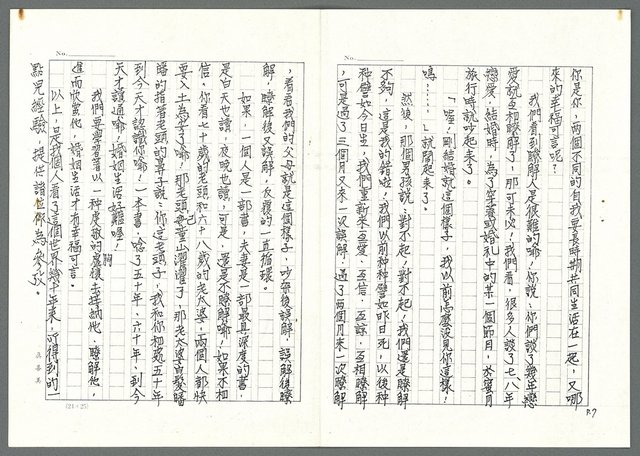 No.
P.7
你是你，兩個不同的自我要長時期共同生活在一起，又哪
來的幸福可言呢？
我們看到瞭解人是很難的喲！你說、你們談了幾年戀
愛就互相瞭解了！那可未必！我們看，很多人談了七八年
戀愛，結婚時，為了羊毒或婚禮中的某一個節目，於蜜月
旅行時就吵起來了。
「喔！剛結婚就這個樣子，我以前怎麼沒見你這樣！
嗚……」就鬧起來了。
然後，那個男孩說：對不起！對不起！我們還是瞭解
不夠，這是我的錯啦！我們以前種種譬如昨日死，以後種
種譬如今日生，我們重新來互愛、互信、互諒、互相瞭解
，可是過了三個月又來一次誤解，過了兩個月來一次瞭解
No.
，看看我們的父母就是這個樣子，吵架後誤解，誤解後瞭
解，瞭解後又誤解，反覆的一直循環。
如果一個人是一部書，夫妻是一部最具深度的書，
是白天也讀，夜晚也讀，可是，還是不瞭解喲！如果不相
信，你看七十八歲的老頭和六十八歲的老太婆，兩個人都快
要入土為安了喲，那老頭
的指著老頭的鼻子說：你這老頭子，我和你相處五十年
到今天才認識你喲！一本書，唸了五十年、六十年，到今
天才讀通喲！婚姻生活好難喔！
我們要學習著以一種度敬的胸懷去接納他，瞭解他，
進而欣賞他，婚姻生活才有幸福可言。
以上，是我個人看了這個世界幾十年來，所得到的一
點兒經驗，提供諸位做為參考。
(24×25)